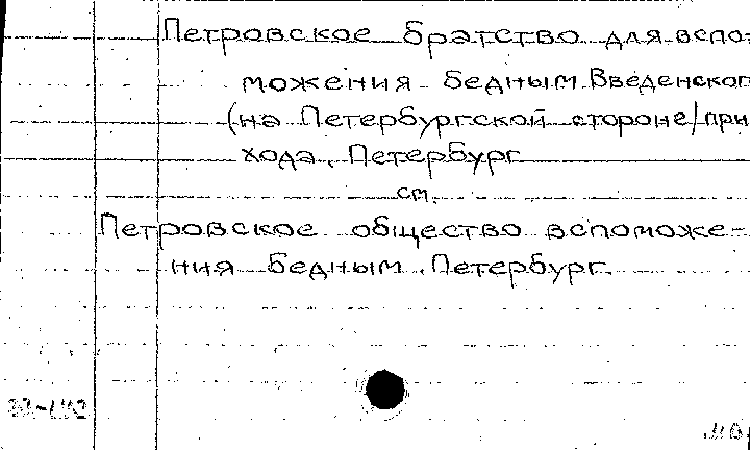 Петровское братство для вспо-
можения бедным Введенског
(на Петербургской стороне) при
хода, Петербург
см.
Петровское общество вспоможе-
ния бедным, Петербург.